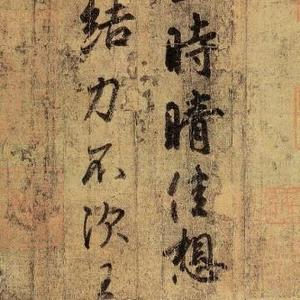 時晴佳想
結力不次王